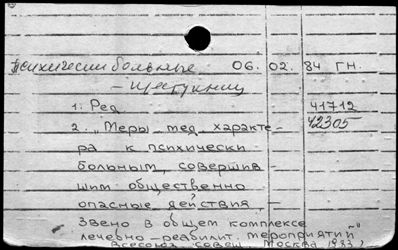 Психически больные 06. 02. 84 гн.
– преступниц
1. Ред 41712
2. „Меры мед. характе- 42305
ра к психически
больным, совершив
шим общественно
опасные действия, –
звено в общем комплексе
лечебно-реабилит. мероприятий"
Всесоюз. совещ. Москва 1983)